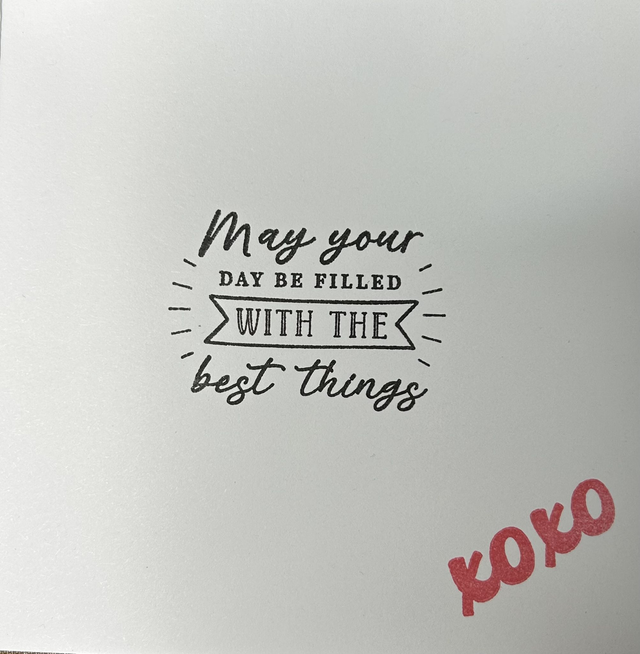 May your
DAY BE FILLED
WITH THE
best things
XOXO